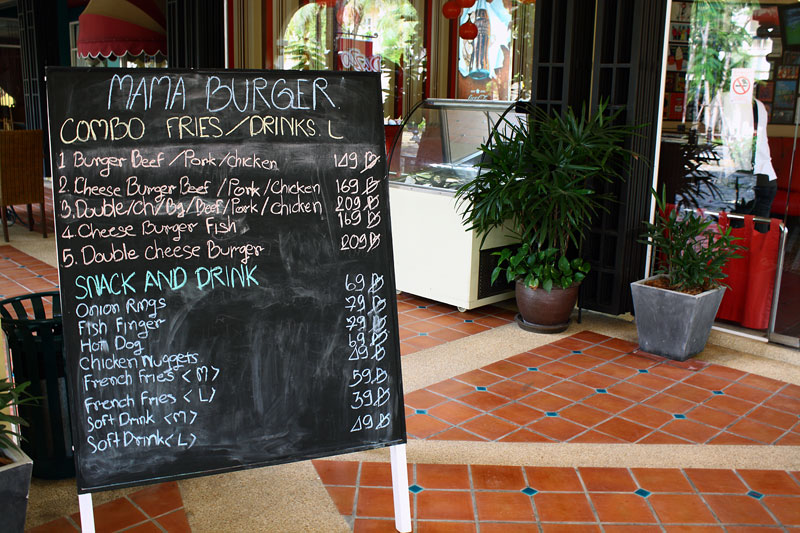 MAMA BURGER.
COMBO FRIES/DRINKS. L
1 Burger Beef /Pork/chicken 149 ฿
2. Cheese Burger Beef /Pork /Chicken 169 ฿
3. Double/Ch/Bg/Beef/Pork/chicken 209 ฿
4. Cheese Burger Fish 169 ฿
5. Double Cheese Burger 209 ฿
SNACK AND DRINK
Onion Rings 69 ฿
Fish Finger 79 ฿
Hot Dog 79 ฿
Chicken Nuggets 69 ฿
French Fries <M> 49 ฿
French Fries <L> 59 ฿
Soft Drink <M> 39 ฿
Soft Drink <L> 49 ฿